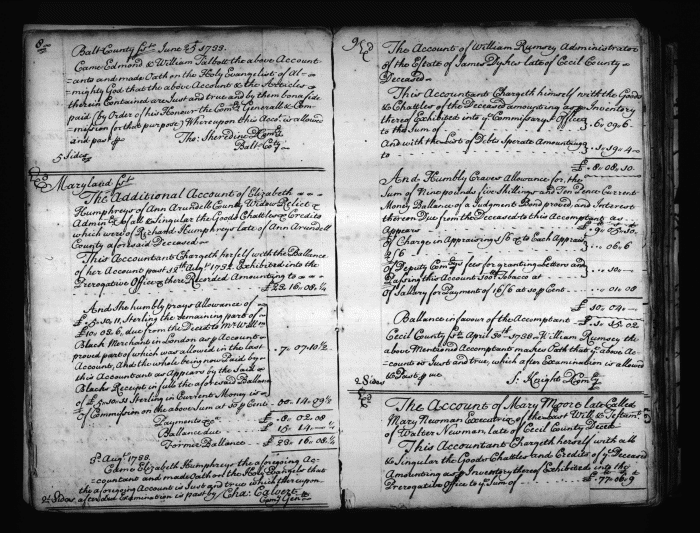 8
Balt County Sct June 25th 1733.
Came Edmond & William Talbott the above Account
=ants and made Oath on the Holy Evangelist of Al=
mighty God that the above Account & the Articles
therein Contained are Just and true and by them bonafide
paid (by Order of his Honour the Comry Generall & Com=
=mission for that purpose) Whereupon this Acct is allowed
and past
Tho: Sheredine D Comry
Balt Cty
5 Sides
Maryland Sct
The Additional Account of Elizabeth
Humphreys of Ann Arundell County Widow Relict &
Admx of all & Singular the Goods Chattles & Credits
which were of Richard Humphreys late of Ann Arundell
County aforesaid Deceased
This Accountant Chargeth herself with the Ballance
of her Account past 12th Augt 1732. Exhibited into the
Prerogative Office & there Recorded Amounting to
£23. 16. 08. ¼
And She humbly prays Allowance of
£5.10.11. Sterling the remaining part of
£10.03.6, due from the Deced to Mr Willm
Black Merchant in London as p Account
proved part of which was allowed in the last
Account, And the whole being now Paid by
this Accountant as Appears by the Said
Blacks Receipt in full the aforesaid Ballance
of £5.10.11 Sterling in Current Money is
7. 07. 10½
of Commission on the above Sum at 10 p Cent
00. 14. 09½
Payments &c
£ 8. 02. 08
Ballance due
£ 15. 14. ¼
Former Ballance
£ 23. 16. 08. ¼
3d Augt 1733.
Came Elizabeth Humphreys the aforegoing Ac=
=countant and made Oath on the Holy Evangels that
the aforegoing Account is Just and true which thereupon
after due Examination is past by Cha: Calvert
Comry Genl
2½ Sides
9
The Account of William Rumsey Administrator
of the Estate of James Dykes late of Cecil County
Deceased
This Accountant Chargeth himself with the Goods
& Chattles of the Deceased amounting as p Inventory
thereof Exhibited into ye Commissarys Office
to the Sum of
3. 09. 6
And with the List of Debts Sperate Amounting
to
5. 19. 4
£ 8. 08. 10
And Humbly Craves Allowance for, the
Sum of Nine pounds five Shillings and Ten Pence Current
Money Ballance of a Judgment Bond proved, and Interest
thereon Due from the Deceased to this Accomptant as
Appears
£ 9. 05. 10
of Charge in Appraising 1/6 to Each Appraiser
2/6
06. 6
of Deputy Comrys fees for granting Letters and
Passing this Account 300 Tobacco at
10
of Sallery for Payment of 16/6 at 10 p Cent
01. 08
£ 10. 04
Ballance in favour of the Accomptant
£ 1. 15. 02
Cecil County Sct April 30th 1733 William Rumsey the
above Mentioned Accomptant makes Oath that ye above Ac=
count is Just and true, which after Examination is allowed
& Past, p me
S: Knight D Comry
2 Sides
The Account of Mary Moore late Called
Mary Newman Executrix of the Last Will & Testamt
of Walter Newman, late of Cecil County Deced
This Accountant Chargeth herself with all
& Singular the Goods Chattles and Credits of ye Deceased
Amounting as p Inventory thereof Exhibited into the
Prerogative Office to ye Sum of
£77. 06. 9